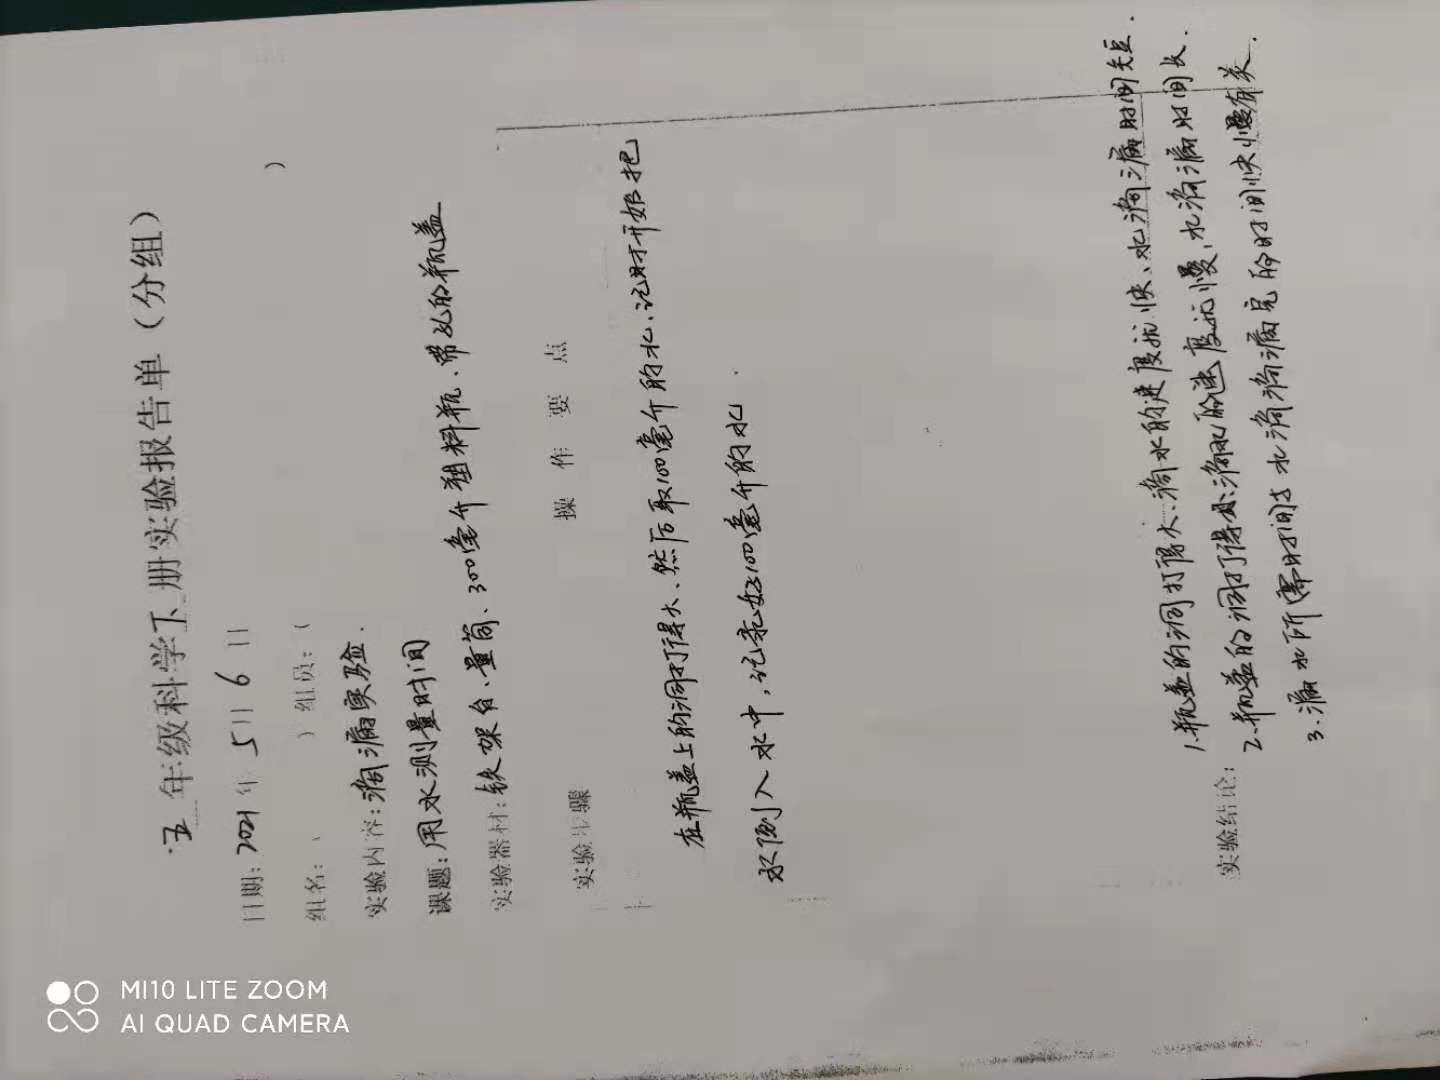 五年级科学下册实验报告单（分组）
日期：2021年5月6日
组名：（ ）组员：（ ）
实验内容：滴漏实验.
课题：用水测量时间
实验器材：铁架台、量筒、300毫升塑料瓶、带孔的瓶盖
实验步骤 操作要点
在瓶盖上的洞打得大、然后取100毫升的水、记时开始把
水倒入水中，记录好100毫升的水.
1.瓶盖的洞打得大：滴水的速度就快、水滴漏时间短.
2.瓶盖的洞打得小：滴水的速度就慢、水滴漏时间长.
实验结论：3.漏水所需时间与水滴滴漏完的时间快慢有关.
MI10 LITE ZOOM
AI QUAD CAMERA